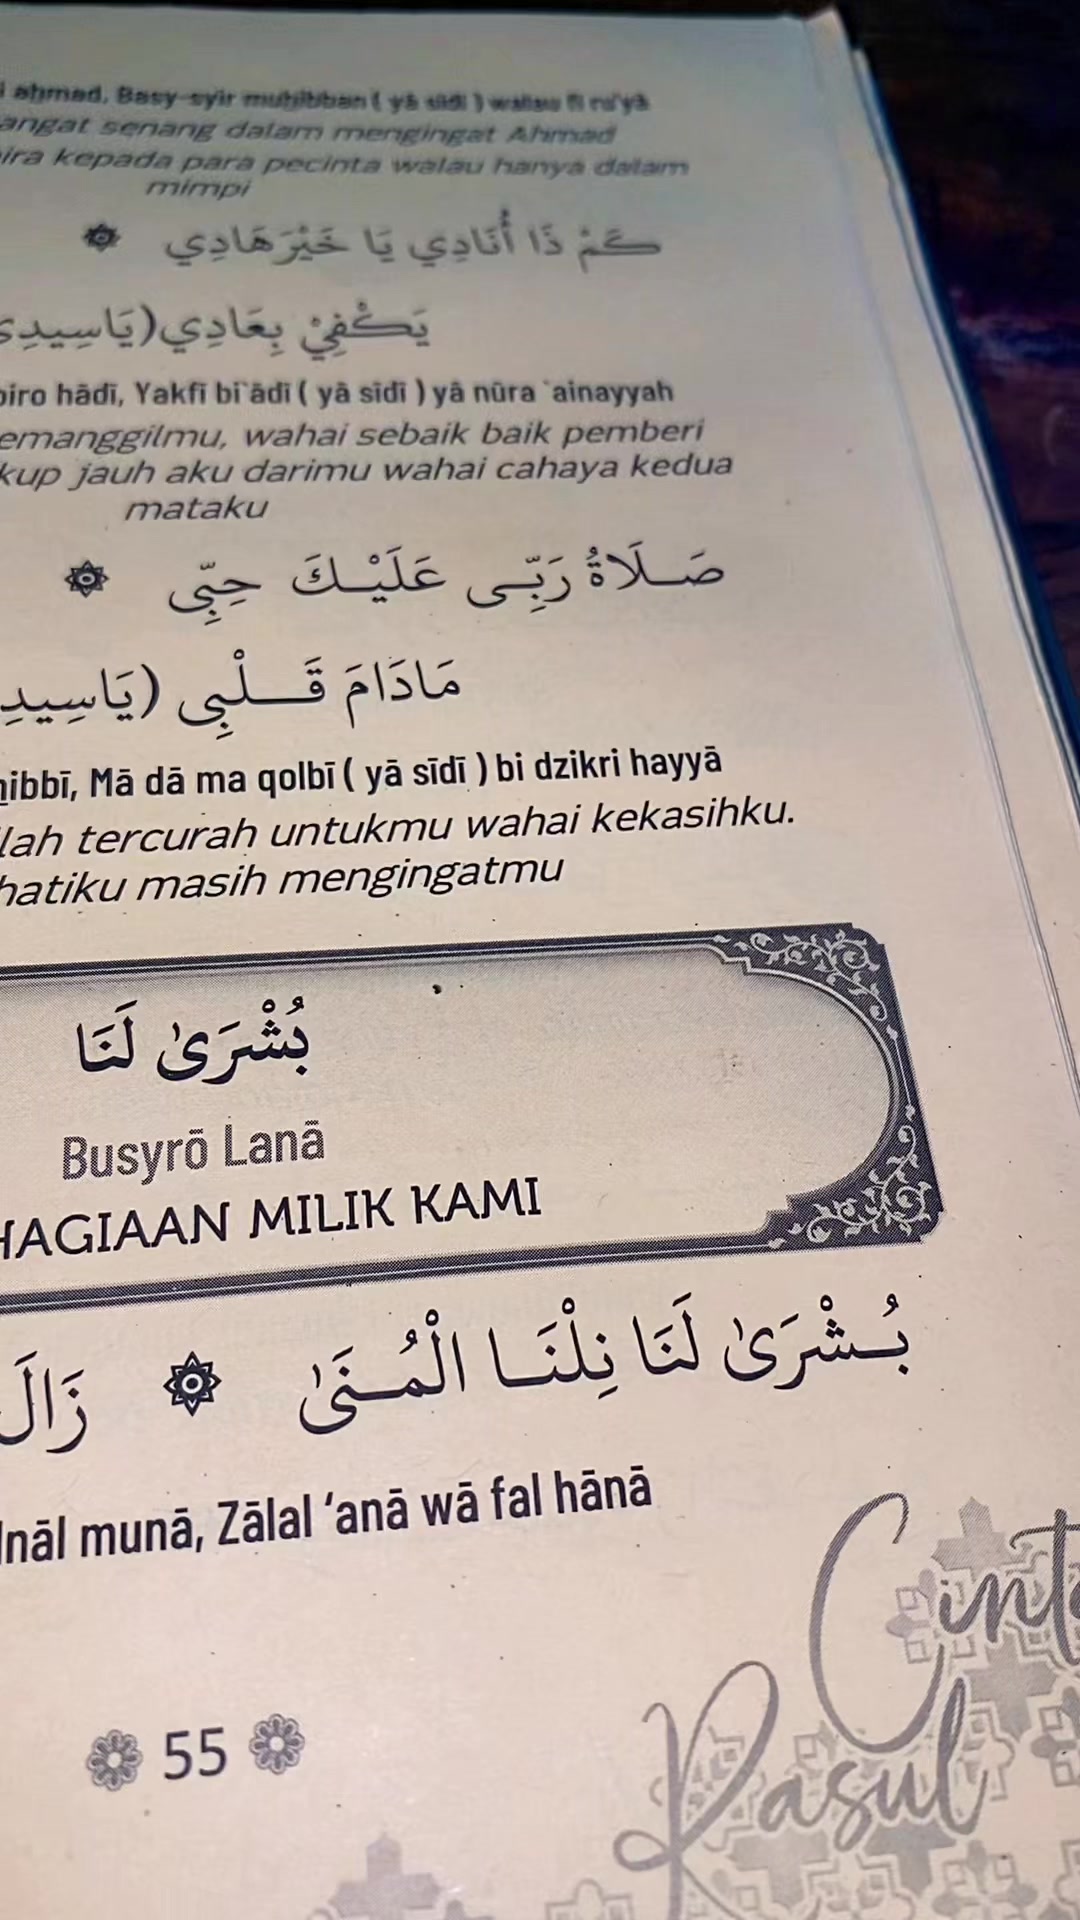 ahmad, Basy-syir muhibban ( yā sīdī ) walau fī ru'yā
angat senang dalam mengingat Ahmad
ira kepada para pecinta walau hanya dalam
mimpi
كَمْ ذَا أُنَادِي يَا خَيْرَ هَادِي
يَكْفِيْ بِعَادِي (يَاسِيدِي
oiro hādī, Yakfī bi`ādī ( yā sīdī ) yā nūra `ainayyah
emanggilmu, wahai sebaik baik pemberi
kup jauh aku darimu wahai cahaya kedua
mataku
صَلَاةُ رَبِّى عَلَيْكَ حِبِّى
مَادَامَ قَلْبِى (يَاسِيدِ
hibbī, Mā dā ma qolbī ( yā sīdī ) bi dzikri hayyā
lah tercurah untukmu wahai kekasihku.
hatiku masih mengingatmu
بُشْرَىٰ لَنَا
Busyrō Lanā
HAGIAAN MILIK KAMI
بُشْرَىٰ لَنَا نِلْنَا الْمُنَىٰ زَالَ
lnāl munā, Zālal ‘anā wā fal hānā
55
Cinta
Rasul